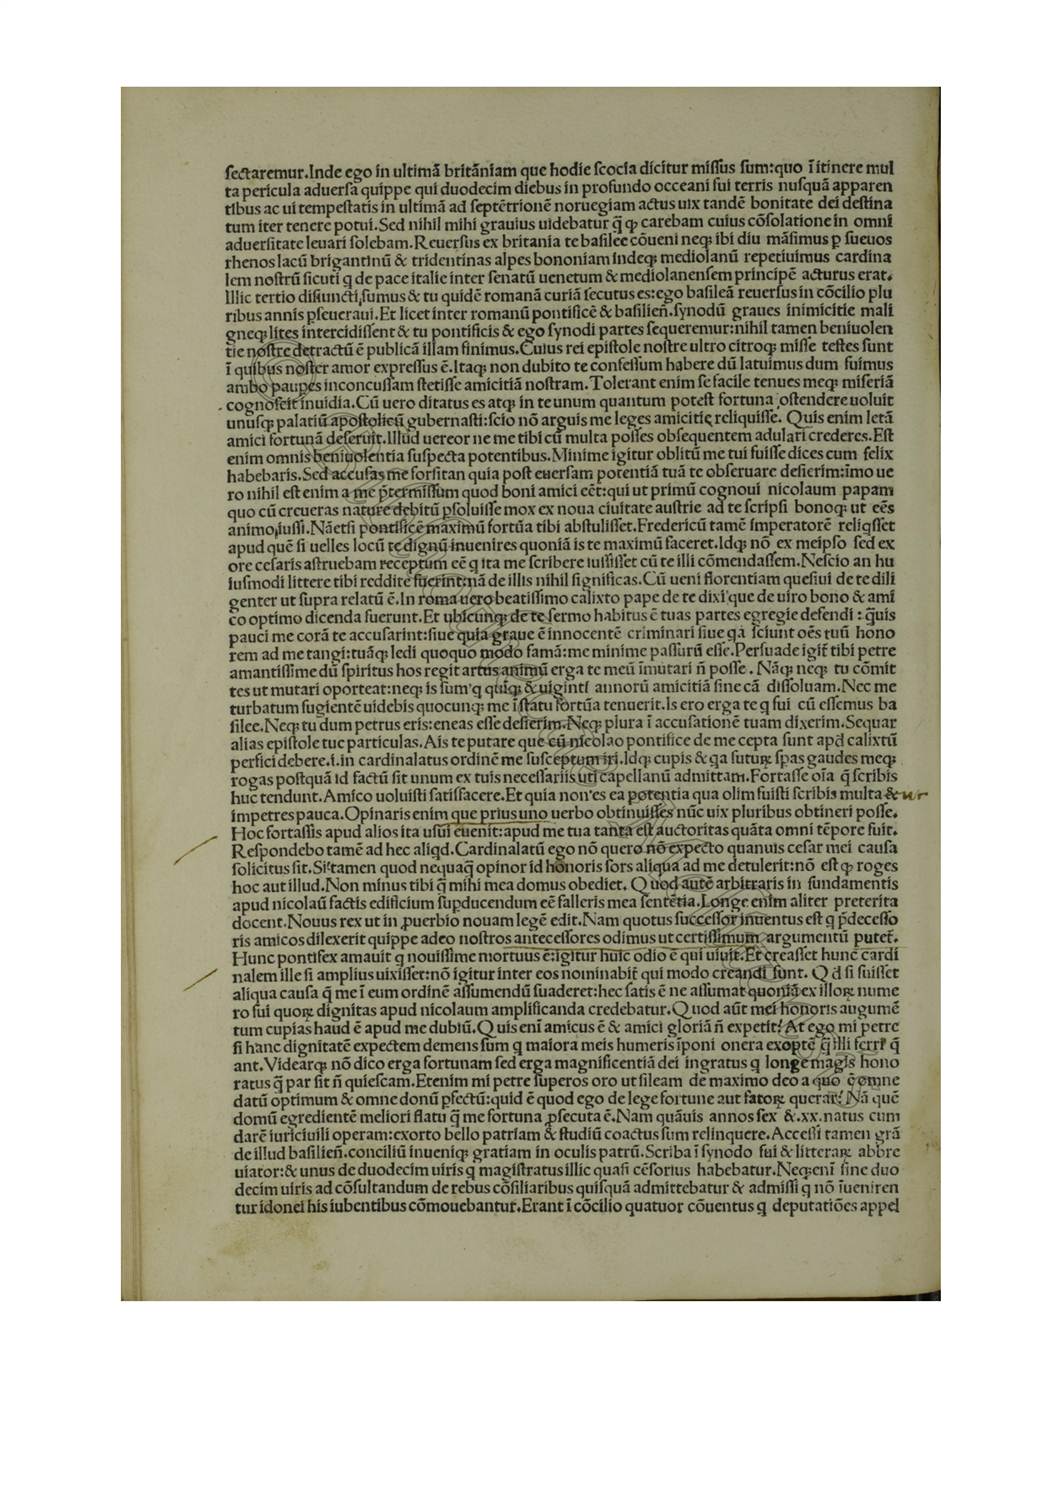 sectaremur.Inde ego in ultimā britāniam que hodie scocia dicitur missus sum:quo ī itinere mul
ta pericula aduersa quippe qui duodecim diebus in profundo occeani sui terris nusquā apparen
tibus ac ui tempestatis in ultimā ad septētrionē noruegiam actus uix tandē bonitate dei destina
tum iter tenere potui.Sed nihil mihi grauius uidebatur q̄ ꝙ carebam cuius cōsolatione in omni
aduersitate leuari solebam.Reuersus ex britania te basilee cōueni neqꝫ ibi diu māsimus p̱ sueuos
rhenos lacū brigantinū & tridentinas alpes bononiam indeqꝫ mediolanū repetiuimus cardina
lem nostrū sicuti q̇ de pace italie inter senatū uenetum & mediolanensem principē acturus erat.
Illic tertio disiuncti sumus & tu quidē romanā curiā secutus es:ego basileā reuersus in cōcilio plu
ribus annis pseueraui.Et licet inter romanū pontificē & basilien̄.synodū graues inimicitie mali
gneqꝫ lites intercidissent & tu pontificis & ego synodi partes sequeremur:nihil tamen beniuolen
tie nostre detractū ē publicā illam finimus.Cuius rei epistole nostre ultro citroqꝫ misse testes sunt
ī quibus noster amor expressus ē.Itaqꝫ non dubito te confessum habere dū latuimus dum fuimus
ambo paupes inconcussam stetisse amicitiā nostram.Tolerant enim se facile tenues meqꝫ miseriā
cognoscit inuidia.Cū uero ditatus es atqꝫ in te unum quantum potest fortuna ostendere uoluit
unusqꝫ palatiū apostolicū gubernasti:scio nō arguis me leges amicitię reliquisse. Quis enim letā
amici fortunā deseruit.Illud uereor ne me tibi cū multa posses obsequentem adulari crederes.Est
enim omnis beniuolentia suspecta potentibus.Minime igitur oblitū me tui fuisse dices cum felix
habebaris.Sed accusas me forsitan quia post euersam potentiā tuā te obseruare desierim:īmo ue
ro nihil est enim a me p̄termissum quod boni amici eēt:qui ut primū cognoui nicolaum papam
quo cū creueras nature debitū psoluisse mox ex noua ciuitate austrie ad te scripsi bonoqꝫ ut eēs
animo iussi.Nā etsi pontificē maximū fortūa tibi abstulisset.Fredericū tamē imperatorē reliqsset
apud quē si uelles locū te dignū inuenires quoniā is te maximū faceret.Idqꝫ nō ex meipso sed ex
ore cesaris astruebam receptum eē q ita me scribere iussisset cū te illi cōmendassem.Nescio an hu
iusmodi littere tibi reddite fuerint:nā de illis nihil significas.Cū ueni florentiam quesiui de te dili
genter ut supra relatū ē.In roma uero beatissimo calixto pape de te dixi que de uiro bono & ami
co optimo dicenda fuerunt.Et ubicunqꝫ de te sermo habitus ē tuas partes egregie defendi : q̄uis
pauci me corā te accusarint:siue quia graue ē innocentē criminari siue qa sciunt oēs tuū hono
rem ad me tangi:tuāqꝫ ledi quoquo modo famā:me minime passurū esse.Persuade igit̄ tibi petre
amantissime dū spiritus hos regit artus animū erga te meū īmutari n̄ posse . Nāqꝫ neqꝫ tu cōmit
tes ut mutari oporteat:neqꝫ is sum q quīqꝫ & uiginti annorū amicitiā sine cā dissoluam.Nec me
turbatum fugientē uidebis quocunqꝫ me ī statu fortūa tenuerit.Is ero erga te q fui cū essemus ba
silee.Neqꝫ tu dum petrus eris:eneas esse desierim.Neqꝫ plura ī accusationē tuam dixerim.Sequar
alias epistole tue particulas.Ais te putare que cū nicolao pontifice de me cepta sunt apd̄ calixtū
perfici debere.i.in cardinalatus ordinē me susceptum iri.Idqꝫ cupis & qa futuꝝ spas gaudes meqꝫ
rogas postquā id factū sit unum ex tuis necessariis uti capellanū admittam.Fortasse oīa q̄ scribis
huc tendunt.Amico uoluisti satisfacere.Et quia non es ea potentia qua olim fuisti scribis multa & ur
impetres pauca.Opinaris enim que prius uno uerbo obtinuisses nūc uix pluribus obtineri posse.
Hoc fortassis apud alios ita usū euenit:apud me tua tanta est auctoritas quāta omni tēpore fuit.
Respondebo tamē ad hec aliqd.Cardinalatū ego nō quero nō expecto quanuis cesar mei causa
solicitus sit.Si tamen quod nequaq̄ opinor id honoris sors aliqua ad me detulerit:nō est ꝙ roges
hoc aut illud.Non minus tibi q̄ mihi mea domus obediet. Quod autē arbitraris in fundamentis
apud nicolaū factis edificium supducendum eē falleris mea sentētia.Longe enim aliter preterita
docent.Nouus rex ut in ꝓuerbio nouam legē edit.Nam quotus successor inuentus est q p̄decesso
ris amicos dilexerit quippe adeo nostros antecessores odimus ut certissimum argumentū putet̄.
Hunc pontifex amauit q nouissime mortuus ē:igitur huic odio ē qui uiuit.Et creasset hunc cardi
nalem ille si amplius uixisset:nō igitur inter eos nominabit̄ qui modo creandi sunt. Qd̄ si fuisset
aliqua causa q̄ me ī eum ordinē assumendū suaderet:hec satis ē ne assumat quoniā ex illoꝝ nume
ro fui quoꝝ dignitas apud nicolaum amplificanda credebatur.Quod aūt mei honoris augumē
tum cupias haud ē apud me dubiū.Quis enī amicus ē & amici gloriā n̄ expetit? At ego mi petre
si hanc dignitatē expectem demens sum q maiora meis humeris īponi onera exoptē q̄ illi ferri q̄
ant.Videarqꝫ nō dico erga fortunam sed erga magnificentiā dei ingratus q longe magis hono
ratus q̄ par sit n̄ quiescam.Etenim mi petre superos oro ut sileam de maximo deo a quo ē omne
datū optimum & omne donū pfectū:quid ē quod ego de lege fortune aut fatoꝝ querar? Nā quē
domū egredientē meliori flatu q̄ me fortuna ꝓsecuta ē.Nam quāuis annos sex &.xx.natus cum
darē iuriciuili operam:exorto bello patriam & studiū coactus sum relinquere.Accessi tamen grā
de illud basilien̄.conciliū inueniqꝫ gratiam in oculis patrū.Scriba ī synodo fui & litteraꝝ abbre
uiator:& unus de duodecim uiris q magistratus illic quasi cēsorius habebatur.Neqꝫ enī sine duo
decim uiris ad cōsultandum de rebus cōsiliaribus quisquā admittebatur & admissi q nō īueniren
tur idonei his iubentibus cōmouebantur.Erant ī cōcilio quatuor cōuentus q deputatiōes appel